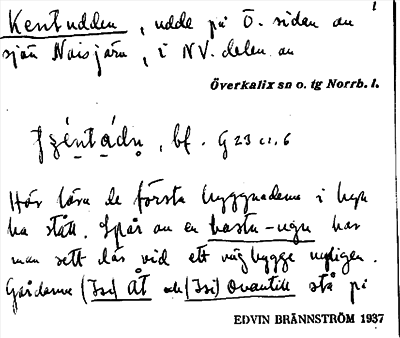 1
Kentudden, udde på Ö. sidan av
sjön Naisjärv, i NV. delen av
Överkalix sn o. tg Norrb. l.
bf. G 23 c1.6
Här lära de första byggnaderna i byn
ha stått. Spår av en bastu-ugn har
man sett där vid ett vägbygge nyligen.
Gårdarna (Isi) åt och (Isi) Ovantill stå på
EDVIN BRÄNNSTRÖM 1937